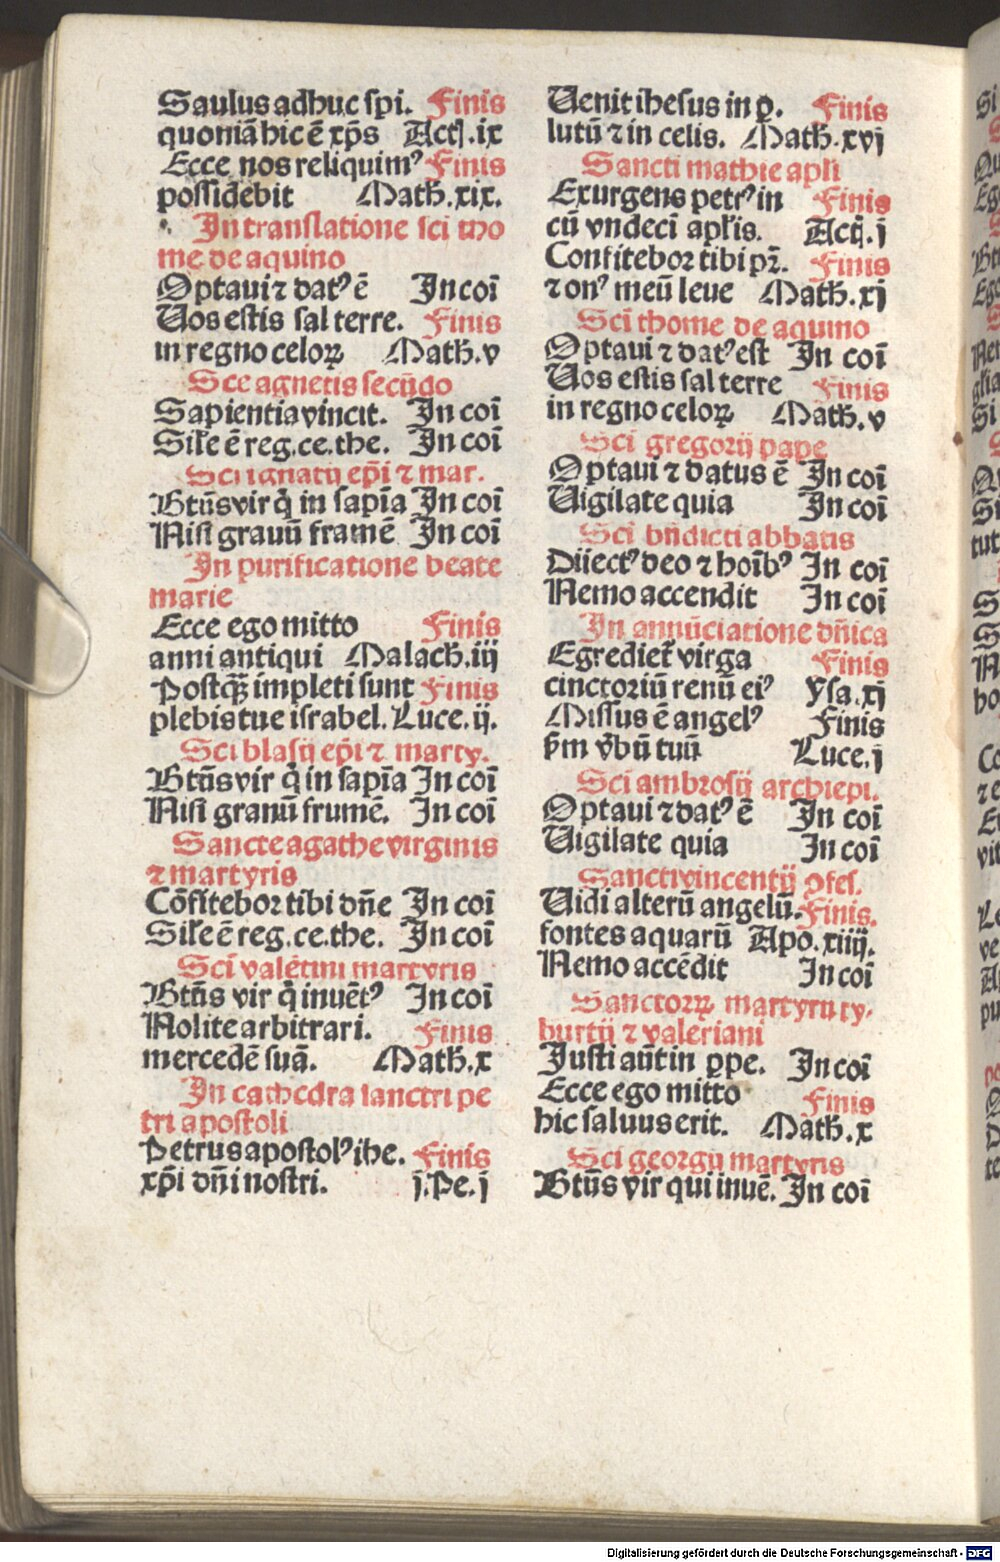 Saulus adhuc spi. Finis
quoniā hic ē xp̄s Actꝭ.ix
Ecce nos reliquimꝰ Finis
possidebit Math̄.xix.
In translatione sci tho
me de aquino
Optaui ⁊ datꝰ ē In coī
Uos estis sal terre. Finis
in regno celoꝝ Math̄.v
Sce agnetis secūdo
Sapientia vincit. In coī
Sile ē reg.ce.the. In coī
Sci ignatij ep̄i ⁊ mar.
Btūs vir q̄ in sapīa In coī
Nisi granū framē In coī
In purificatione beate
marie
Ecce ego mitto Finis
anni antiqui Malach.iij
Postq̄ȝ impleti sunt Finis
plebis tue israbel. Luce.ij.
Sci blasij ep̄i ⁊ marty.
Btūs vir q̄ in sapīa In coī
Nisi granū frumē. In coī
Sancte agathe virginis
⁊ martyris
Cōfitebor tibi dn̄e In coī
Sile ē reg.ce.the. In coī
Sci valētini martyris
Btūs vir q̄ inuētꝰ In coī
Nolite arbitrari. Finis
mercedē suā. Math̄.x
In cathedra sanctri pe
tri apostoli
Petrus apostolꝰ ihe. Finis
xp̄i dn̄i nostri. j.Pe.j
Uenit ihesus in ꝑ. Finis
lutū ⁊ in celis. Math̄.xvj
Sancti mathie apli
Exurgens petrꝰ in Finis
cū vndeci apl̄is. Actꝭ.j
Confitebor tibi pr̄. Finis
⁊ onꝰ meū leue Math̄.xj
Sci thome de aquino
Optaui ⁊ datꝰ est In coī
Uos estis sal terre Finis
in regno celoꝝ Math̄.v
Sci gregorij pape
Optaui ⁊ datus ē In coī
Uigilate quia In coī
Sci bn̄dicti abbatis
Dijectꝰ deo ⁊ hoībꝰ In coī
Nemo accendit In coī
In annūciatione dn̄ica
Egrediet̄ virga Finis
cinctoriū renū eiꝰ Ysa.xj
Missus ē angelꝰ Finis
p̄m v̄bū tuū Luce.j
Sci ambrosij archiepi.
Optaui ⁊ datꝰ ē In coī
Uigilate quia In coī
Sancti vincentij ꝯfes.
Uidi alterū angelū. Finis.
fontes aquarū Apo.xiiij.
Nemo accēdit In coī
Sanctoꝝ martyru ty-
burtij ⁊ valeriani
Justi aūt in ꝑpe. In coī
Ecce ego mitto Finis
hic saluus erit. Math̄.x
Sci georgij martyris
Btūs vir qui inuē. In coī
Digitalisierung gefördert durch die Deutsche Forschungsgemeinschaft - DFG